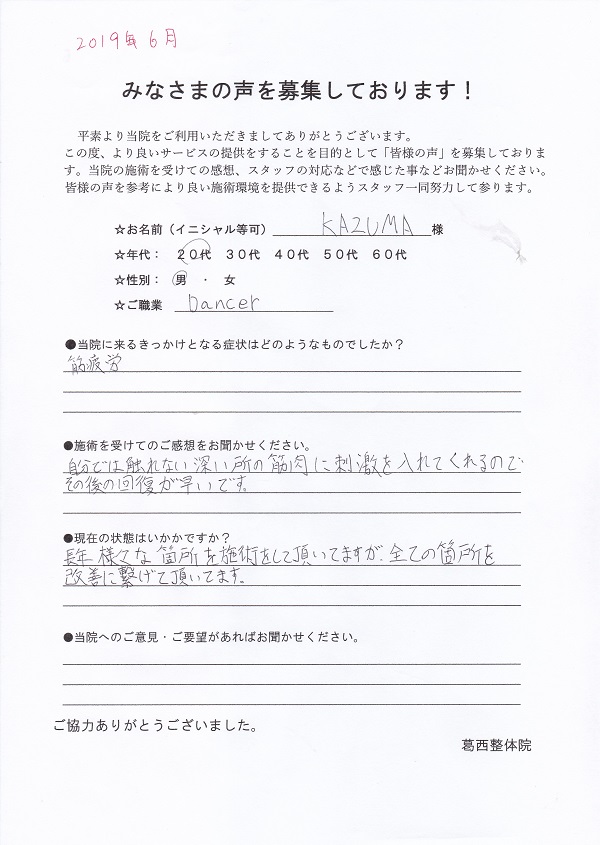 2019年6月
みなさまの声を募集しております！
平素より当院をご利用いただきましてありがとうございます。
この度、より良いサービスの提供をすることを目的として「皆様の声」を募集しておりま
す。当院の施術を受けての感想、スタッフの対応などで感じた事などお聞かせください。
皆様の声を参考により良い施術環境を提供できるようスタッフ一同努力して参ります。
☆お名前（イニシャル等可） KAZUMA 様
☆年代： 20代 30代 40代 50代 60代
☆性別： 男 ・ 女
☆ご職業 Dancer
●当院に来るきっかけとなる症状はどのようなものでしたか？
筋疲労
●施術を受けてのご感想をお聞かせください。
自分では触れない深い所の筋肉に刺激を入れてくれるので
その後の回復が早いです。
●現在の状態はいかかですか？
長年様々な箇所を施術をして頂いてますが、全ての箇所を
改善に繋げて頂いてます。
●当院へのご意見・ご要望があればお聞かせください。
ご協力ありがとうございました。
葛西整体院